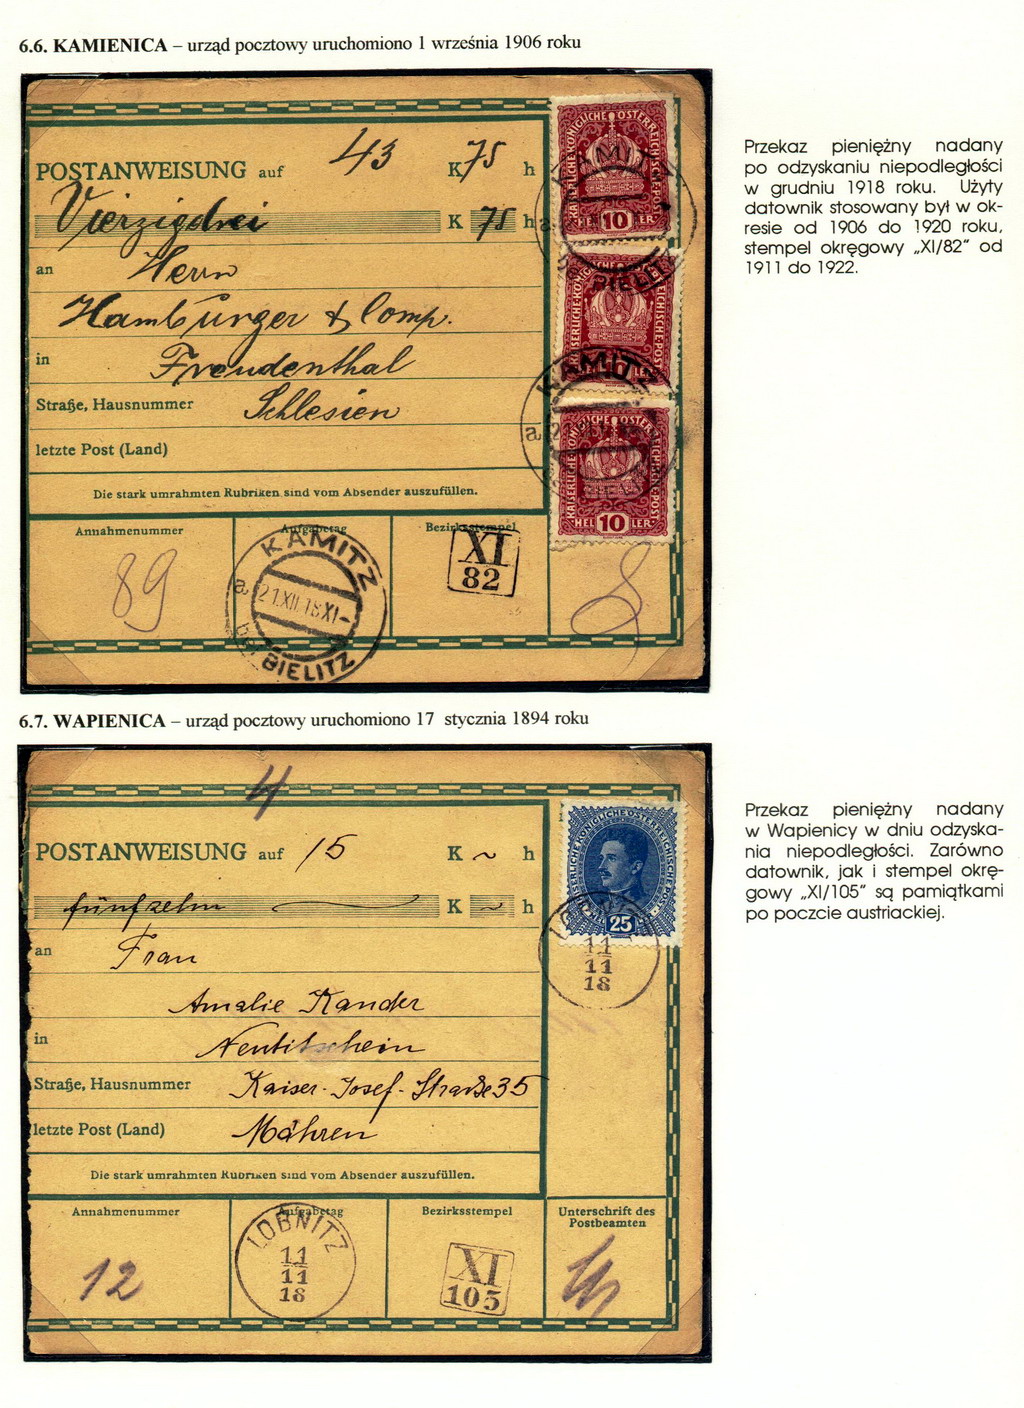 6.6. KAMIENICA – urząd pocztowy uruchomiono 1 września 1906 roku
POSTANWEISUNG auf 43 K 75 h
Vierzigdrei K 75 h
an Herrn
Hamburger & Comp.
in Freudenthal
Straße, Hausnummer Schlesien
letzte Post (Land)
Die stark umrahmten Rubriken sind vom Absender auszufüllen.
KAISERLICHE KÖNIGLICHE ÖSTERREICHISCHE POST
HELLER 10
KAMITZ
BIELITZ
KAISERLICHE KÖNIGLICHE ÖSTERREICHISCHE POST
KAMITZ
a
KAISERLICHE KÖNIGLICHE ÖSTERREICHISCHE POST
HELLER 10
Annahmenummer Aufgabetag Bezirksstempel
89
KAMITZ
a 21.XII.18 XI-
bei BIELITZ
XI
82
Przekaz pieniężny nadany
po odzyskaniu niepodległości
w grudniu 1918 roku. Użyty
datownik stosowany był w ok-
resie od 1906 do 1920 roku,
stempel okręgowy „XI/82” od
1911 do 1922.
6.7. WAPIENICA – urząd pocztowy uruchomiono 17 stycznia 1894 roku
4
POSTANWEISUNG auf 15 K ~ h
fünfzehn K ~ h
an Frau
Amalie Kander
in Neutitschein
Straße, Hausnummer Kaiser-Josef-Straße 35
letzte Post (Land) Mähren
Die stark umrahmten Rubriken sind vom Absender auszufüllen.
KAISERLICHE KÖNIGLICHE ÖSTERREICHISCHE POST
25
LOBNITZ
11
11
18
Annahmenummer Aufgabetag Bezirksstempel Unterschrift des
Postbeamten
12
LOBNITZ
11
11
18
XI
105
Przekaz pieniężny nadany
w Wapienicy w dniu odzyska-
nia niepodległości. Zarówno
datownik, jak i stempel okrę-
gowy „XI/105” są pamiątkami
po poczcie austriackiej.